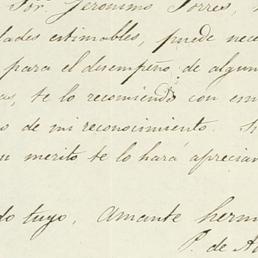 Sor. Jeronimo Torres,
dades estimables, puede nece
para el desempeño de algun
as, te lo recomiendo con em
o de mi reconocimiento.
merito te lo hará aprecian
do tuyo, amante herm
P. de A